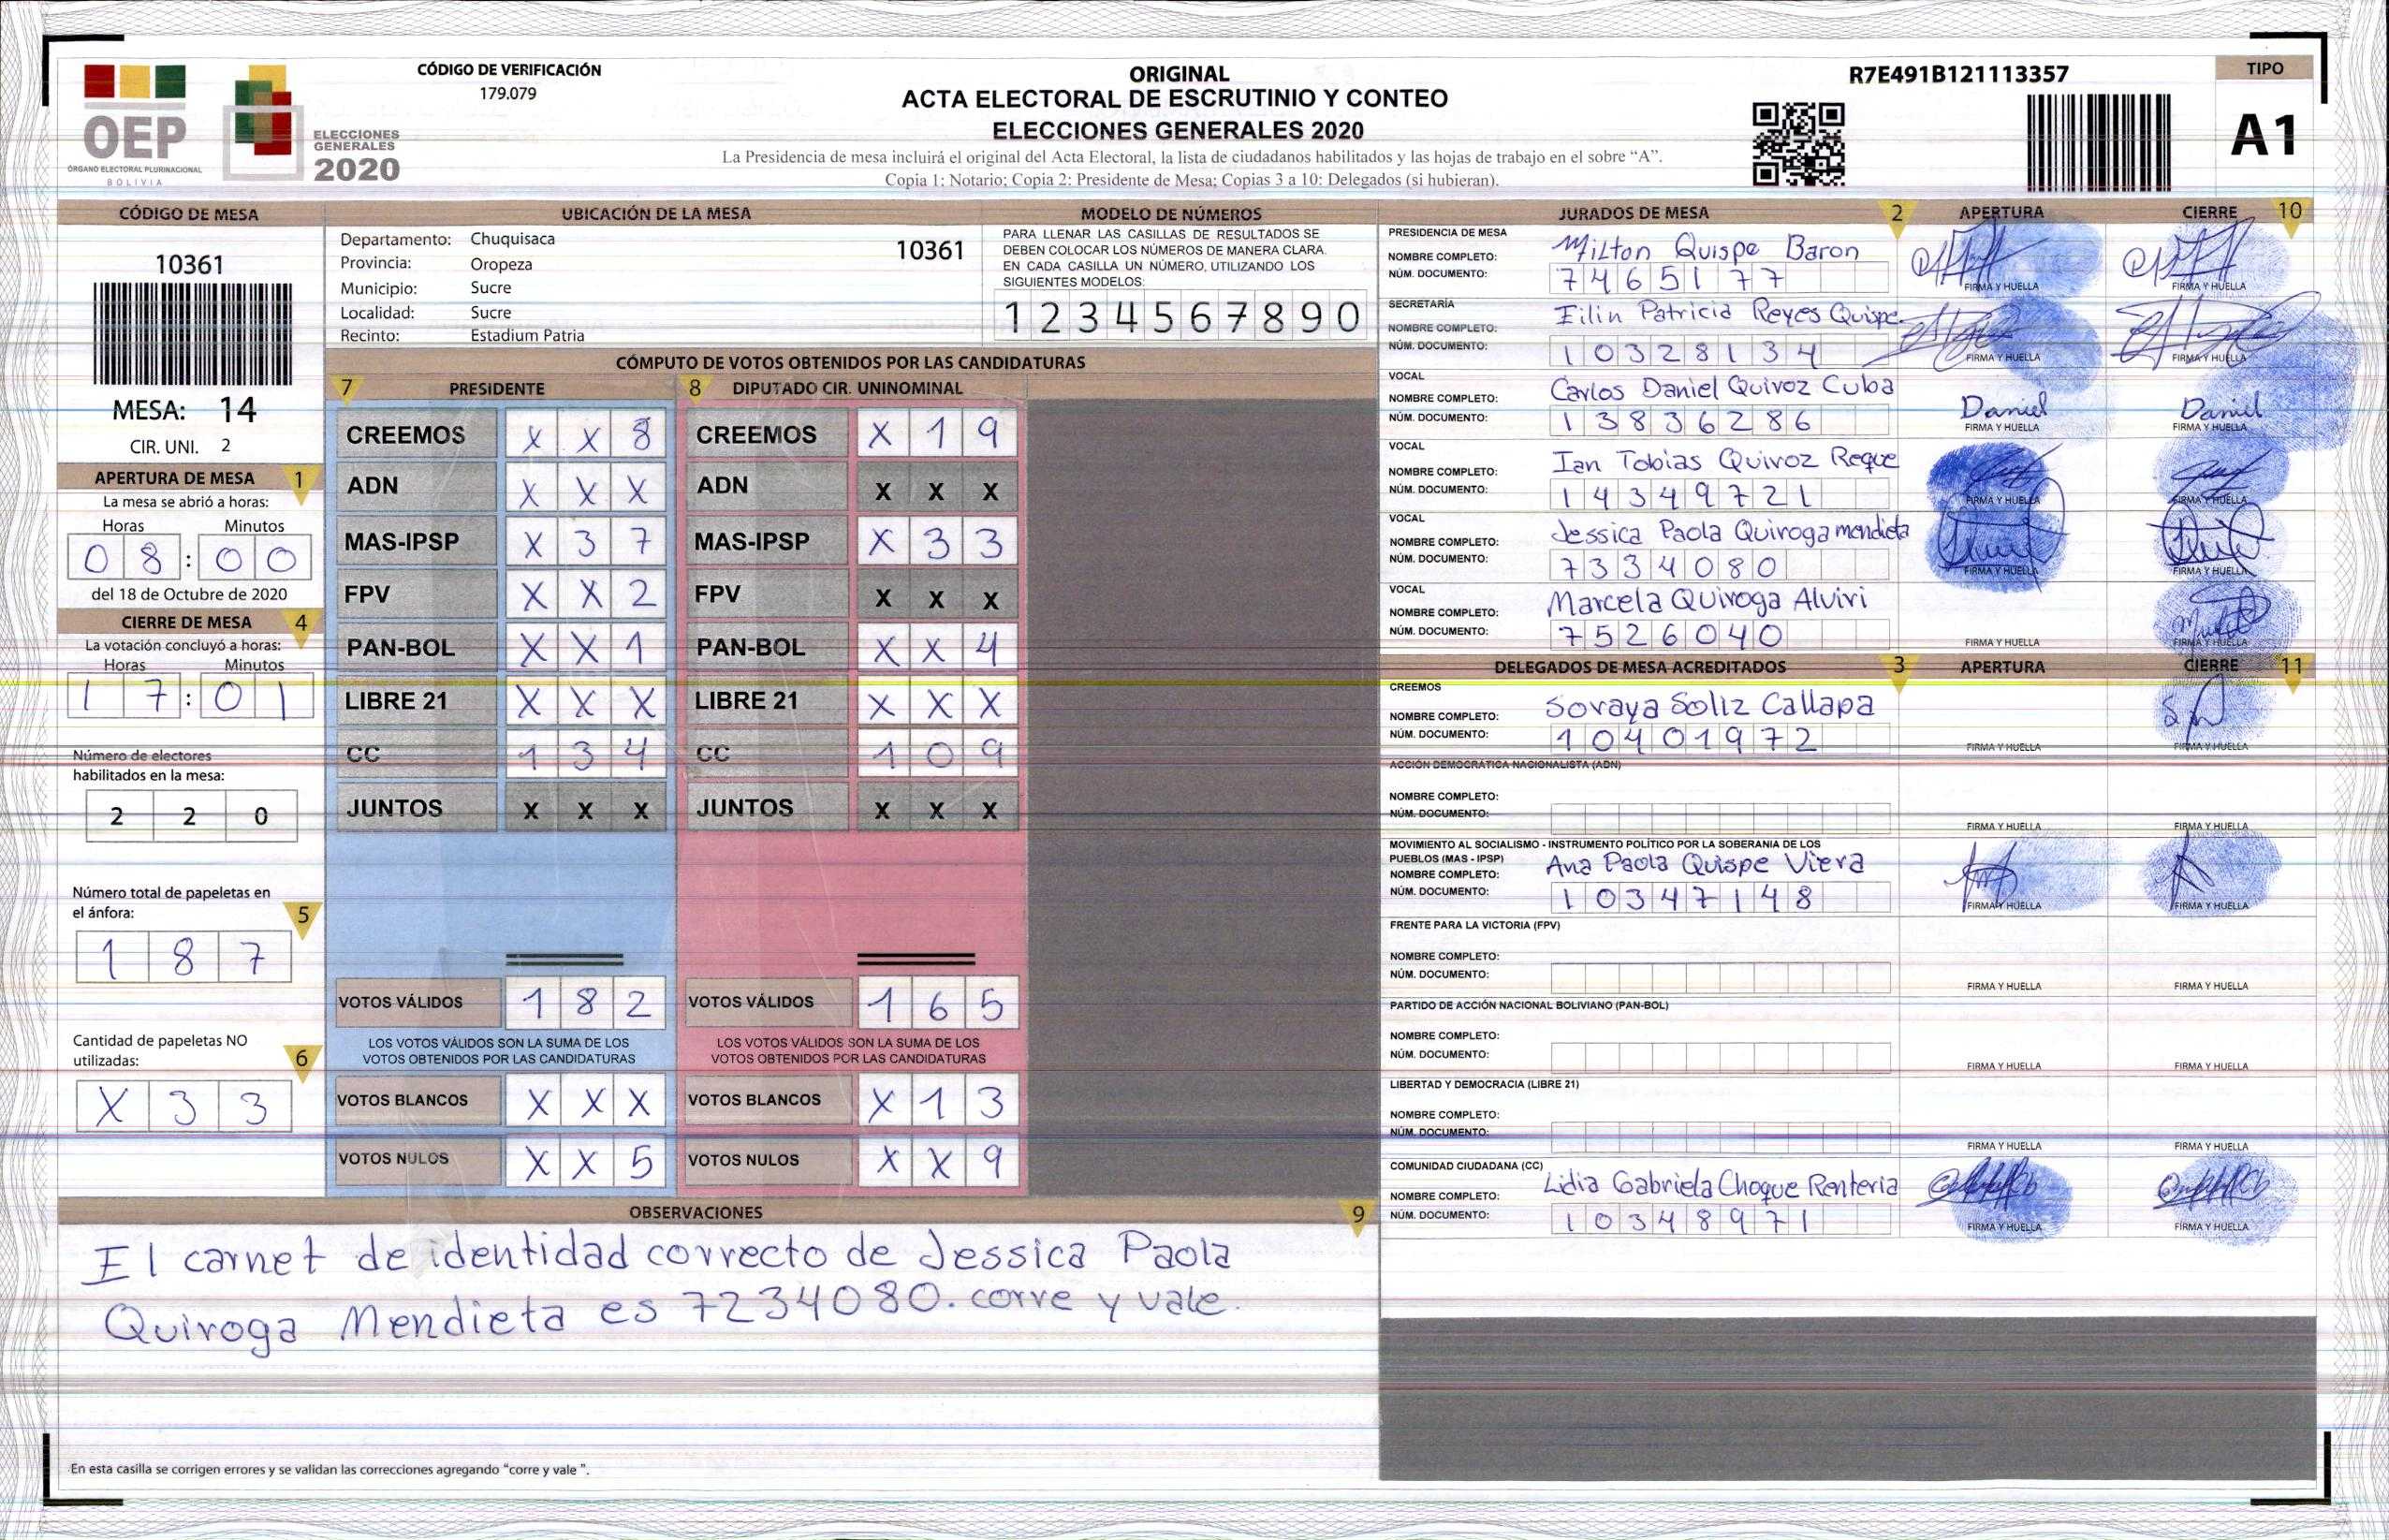 OEP
ÓRGANO ELECTORAL PLURINACIONAL
BOLIVIA
ELECCIONES
GENERALES
2020
CÓDIGO DE VERIFICACIÓN
179.079
ORIGINAL
ACTA ELECTORAL DE ESCRUTINIO Y CONTEO
ELECCIONES GENERALES 2020
La Presidencia de mesa incluirá el original del Acta Electoral, la lista de ciudadanos habilitados y las hojas de trabajo en el sobre “A”.
Copia 1: Notario; Copia 2: Presidente de Mesa; Copias 3 a 10: Delegados (si hubieran).
R7E491B121113357
TIPO
A1
CÓDIGO DE MESA
10361
MESA: 14
CIR. UNI. 2
APERTURA DE MESA 1
La mesa se abrió a horas:
Horas Minutos
08:00
del 18 de Octubre de 2020
CIERRE DE MESA 4
La votación concluyó a horas:
Horas Minutos
17:01
Número de electores
habilitados en la mesa:
2 2 0
Número total de papeletas en
el ánfora: 5
1 8 7
Cantidad de papeletas NO
utilizadas: 6
X 3 3
UBICACIÓN DE LA MESA
Departamento: Chuquisaca 10361
Provincia: Oropeza
Municipio: Sucre
Localidad: Sucre
Recinto: Estadium Patria
MODELO DE NÚMEROS
PARA LLENAR LAS CASILLAS DE RESULTADOS SE
DEBEN COLOCAR LOS NÚMEROS DE MANERA CLARA.
EN CADA CASILLA UN NÚMERO, UTILIZANDO LOS
SIGUIENTES MODELOS:
1 2 3 4 5 6 7 8 9 0
CÓMPUTO DE VOTOS OBTENIDOS POR LAS CANDIDATURAS
7 PRESIDENTE 8 DIPUTADO CIR. UNINOMINAL
CREEMOS X X 8 CREEMOS X 1 9
ADN X X X ADN X X X
MAS-IPSP X 3 7 MAS-IPSP X 3 3
FPV X X 2 FPV X X X
PAN-BOL X X 1 PAN-BOL X X 4
LIBRE 21 X X X LIBRE 21 X X X
CC 1 3 4 CC 1 0 9
JUNTOS X X X JUNTOS X X X
VOTOS VÁLIDOS 1 8 2 VOTOS VÁLIDOS 1 6 5
LOS VOTOS VÁLIDOS SON LA SUMA DE LOS LOS VOTOS VÁLIDOS SON LA SUMA DE LOS
VOTOS OBTENIDOS POR LAS CANDIDATURAS VOTOS OBTENIDOS POR LAS CANDIDATURAS
VOTOS BLANCOS X X X VOTOS BLANCOS X 1 3
VOTOS NULOS X X 5 VOTOS NULOS X X 9
OBSERVACIONES 9
El carnet de identidad correcto de Jessica Paola
Quiroga Mendieta es 7234080. corre y vale.
En esta casilla se corrigen errores y se validan las correcciones agregando “corre y vale ”.
JURADOS DE MESA 2 APERTURA CIERRE 10
PRESIDENCIA DE MESA
NOMBRE COMPLETO: Milton Quispe Baron
NÚM. DOCUMENTO: 7465177
FIRMA Y HUELLA FIRMA Y HUELLA
SECRETARÍA
NOMBRE COMPLETO: Eilin Patricia Reyes Quispe
NÚM. DOCUMENTO: 10328134
FIRMA Y HUELLA FIRMA Y HUELLA
VOCAL
NOMBRE COMPLETO: Carlos Daniel Quiroz Cuba
NÚM. DOCUMENTO: 13836286
Daniel Daniel
FIRMA Y HUELLA FIRMA Y HUELLA
VOCAL
NOMBRE COMPLETO: Ian Tobias Quiroz Reque
NÚM. DOCUMENTO: 14349721
FIRMA Y HUELLA FIRMA Y HUELLA
VOCAL
NOMBRE COMPLETO: Jessica Paola Quiroga mendieta
NÚM. DOCUMENTO: 7334080
FIRMA Y HUELLA FIRMA Y HUELLA
VOCAL
NOMBRE COMPLETO: Marcela Quiroga Alviri
NÚM. DOCUMENTO: 7526040
FIRMA Y HUELLA FIRMA Y HUELLA
DELEGADOS DE MESA ACREDITADOS 3 APERTURA CIERRE 11
CREEMOS
NOMBRE COMPLETO: Soraya Soliz Callapa
NÚM. DOCUMENTO: 10401972
FIRMA Y HUELLA FIRMA Y HUELLA
ACCIÓN DEMOCRÁTICA NACIONALISTA (ADN)
NOMBRE COMPLETO:
NÚM. DOCUMENTO:
FIRMA Y HUELLA FIRMA Y HUELLA
MOVIMIENTO AL SOCIALISMO - INSTRUMENTO POLÍTICO POR LA SOBERANIA DE LOS
PUEBLOS (MAS - IPSP)
NOMBRE COMPLETO: Ana Paola Quispe Viera
NÚM. DOCUMENTO: 10347148
FIRMA Y HUELLA FIRMA Y HUELLA
FRENTE PARA LA VICTORIA (FPV)
NOMBRE COMPLETO:
NÚM. DOCUMENTO:
FIRMA Y HUELLA FIRMA Y HUELLA
PARTIDO DE ACCIÓN NACIONAL BOLIVIANO (PAN-BOL)
NOMBRE COMPLETO:
NÚM. DOCUMENTO:
FIRMA Y HUELLA FIRMA Y HUELLA
LIBERTAD Y DEMOCRACIA (LIBRE 21)
NOMBRE COMPLETO:
NÚM. DOCUMENTO:
FIRMA Y HUELLA FIRMA Y HUELLA
COMUNIDAD CIUDADANA (CC)
NOMBRE COMPLETO: Lidia Gabriela Choque Renteria
NÚM. DOCUMENTO: 10348971
FIRMA Y HUELLA FIRMA Y HUELLA